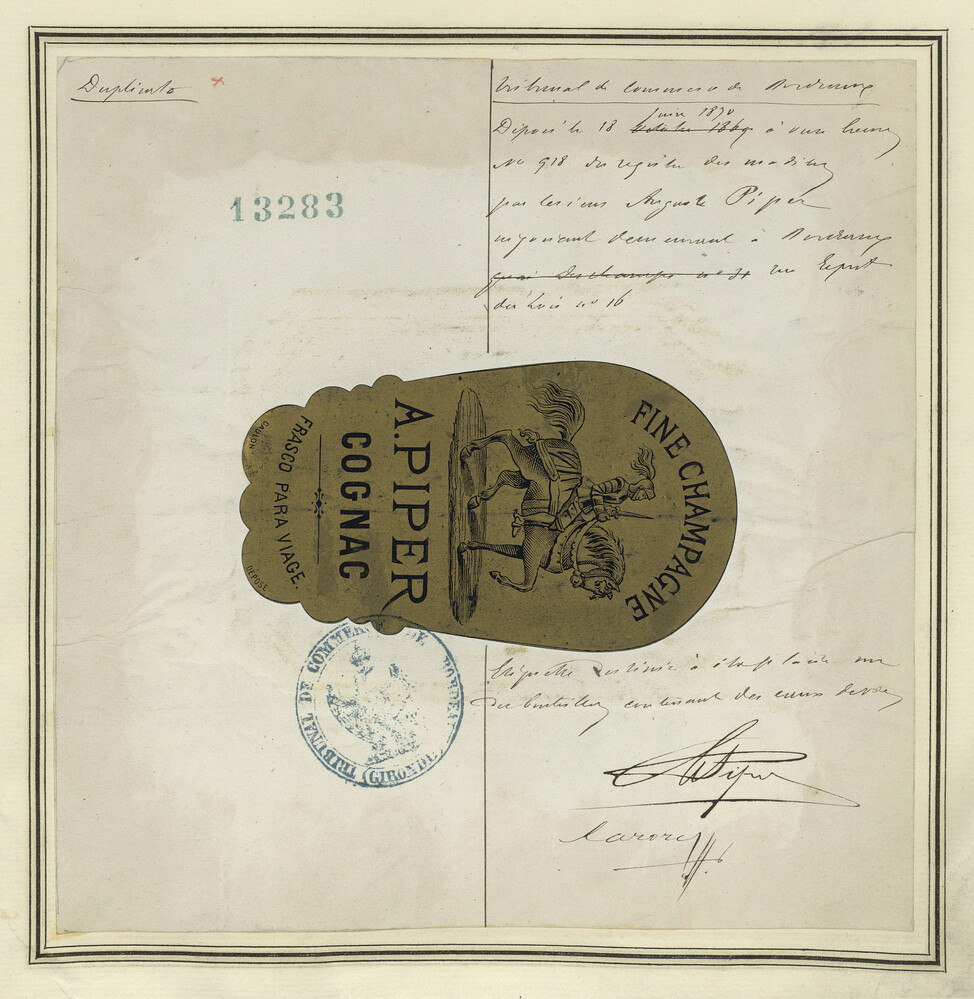 Duplicata
Tribunal de Commerce de Bordeaux
juin 1870
Déposé le 18 octobre 1869 à onze heures
No 918 du registre des modèles
par le sieur Auguste Piper
négociant demeurant à Bordeaux
quai Deschamps no 31 rue Esprit
des Lois no 16
13283
FINE CHAMPAGNE
A. PIPER
COGNAC
FRASCO PARA VIAGE.
GAULON
DÉPOSÉ
TRIBUNAL DE COMMERCE DE BORDEAUX
(GIRONDE)
Etiquette destinée à être placée sur
des bouteilles contenant des eaux de vie
A Piper